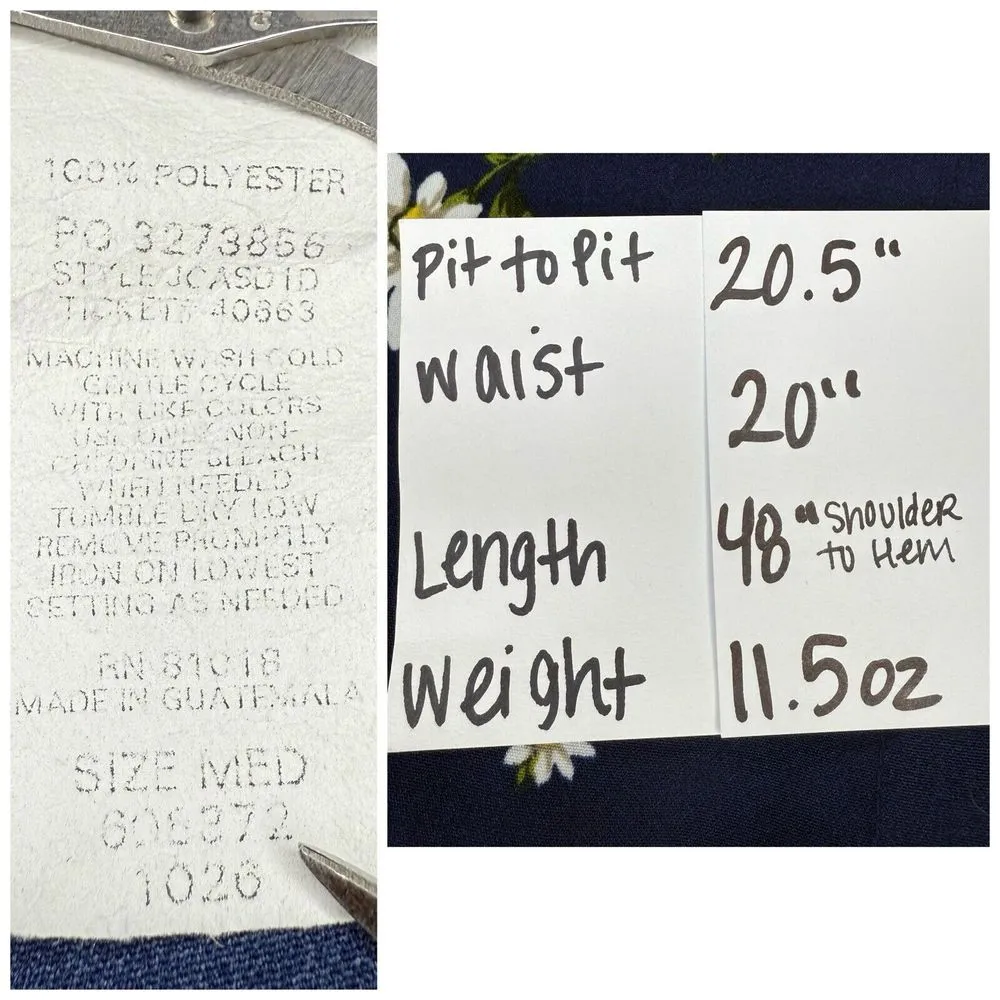 100% POLYESTER
PO 3273856
STYLE JCASD1D
TICKET# 40663
MACHINE WASH COLD
GENTLE CYCLE
WITH LIKE COLORS
USE ONLY NON-
CHLORINE BLEACH
WHEN NEEDED
TUMBLE DRY LOW
REMOVE PROMPTLY
IRON ON LOWEST
SETTING AS NEEDED
RN 81018
MADE IN GUATEMALA
SIZE MED
608372
1026
Pit to Pit 20.5"
waist 20"
Length 48" Shoulder
to Hem
weight 11.5oz